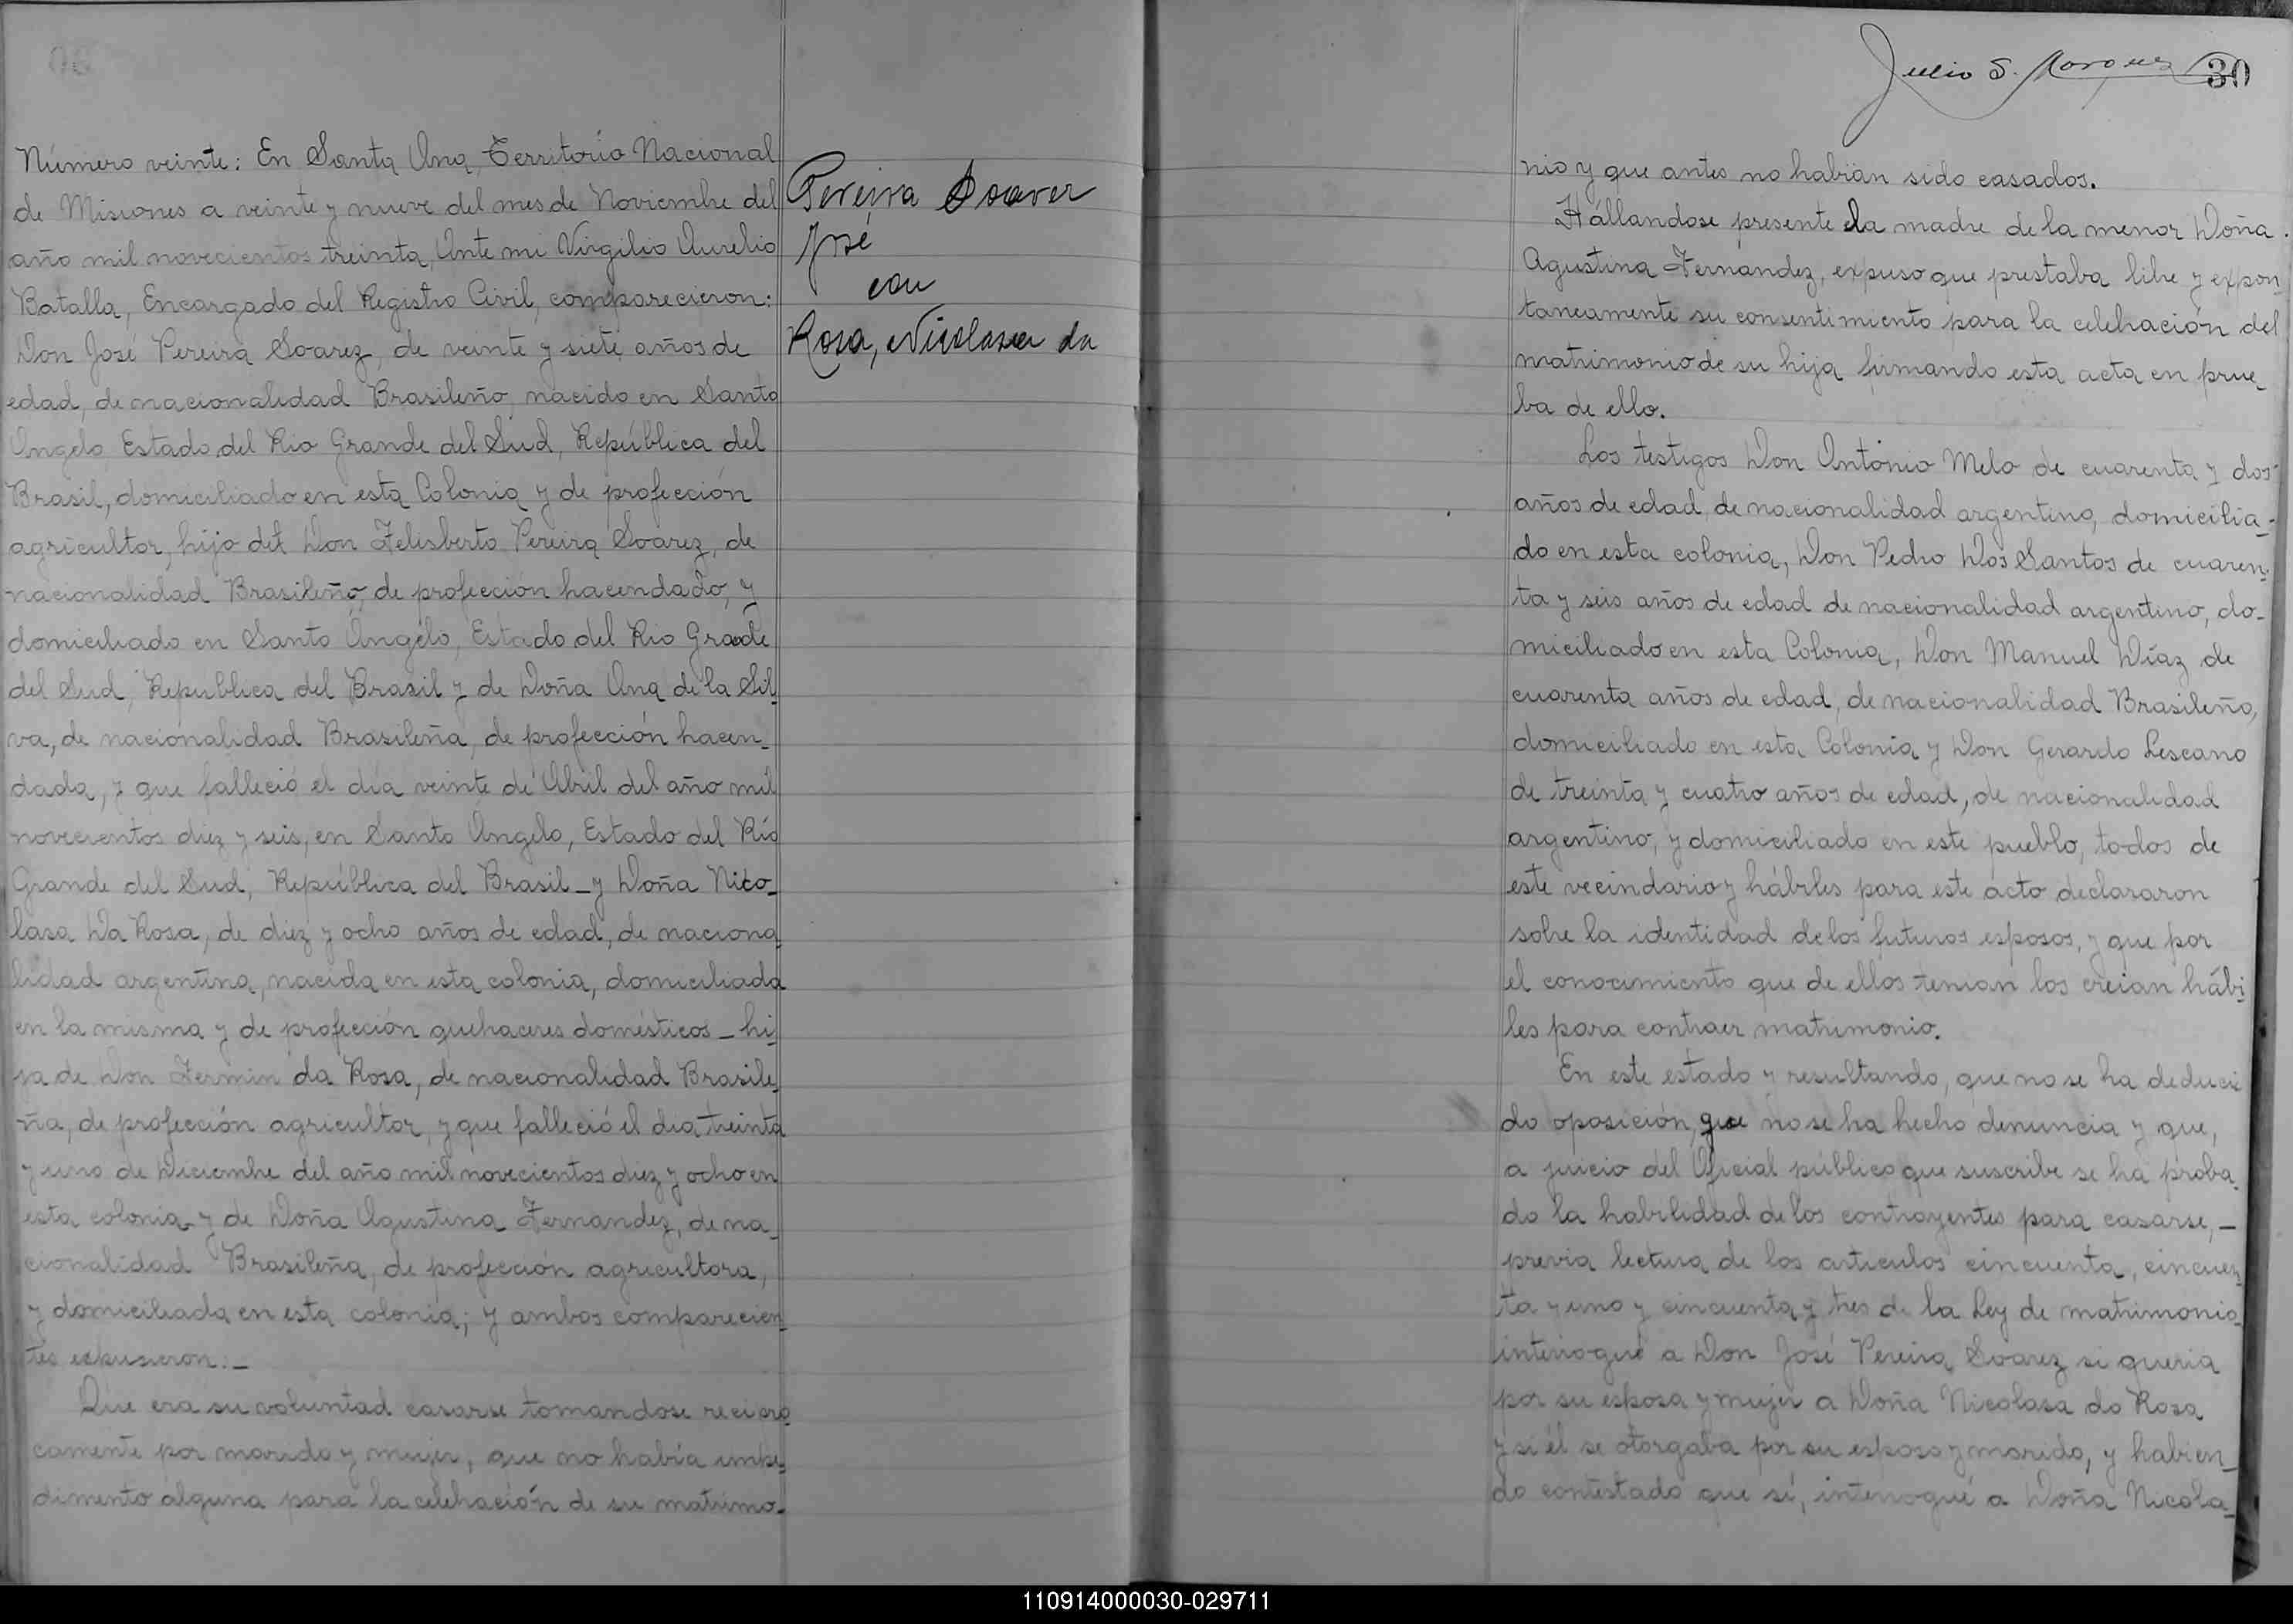 Número veinte: En Santa Ana, Territorio Nacional
de Misiones a veinte y nueve del mes de Noviembre del
año mil novecientos treinta, Ante mi Virgilio Aurelio
Batalla, Encargado del Registro Civil, comparecieron:
Don José Pereira Soarez, de veinte y siete años de
edad, de nacionalidad Brasileño, nacido en Santo
Angelo, Estado del Rio Grande del Sud, República del
Brasil, domiciliado en esta Colonia y de profección
agricultor, hijo del Don Felisberto Pereira Soarez, de
nacionalidad Brasileño, de profección hacendado, y
domiciliado en Santo Angelo, Estado del Rio Grande
del Sud, Republica del Brasil y de Doña Ana de la Sil_
va, de nacionalidad Brasileña, de profección hacen_
dada, y que falleció el día veinte de Abril del año mil
novecientos diez y seis, en Santo Angelo, Estado del Río
Grande del Sud, República del Brasil _ y Doña Nico_
lasa Da Rosa, de diez y ocho años de edad, de naciona_
lidad argentina, nacida en esta colonia, domiciliada
en la misma y de profección quehaceres domésticos _ hi_
ja de Don Fermin da Rosa, de nacionalidad Brasile_
ña, de profección agricultor, y que falleció el dia treinta
y uno de Diciembre del año mil novecientos diez y ocho en
esta colonia y de Doña Agustina Fernandez, de na_
cionalidad Brasileña, de profección agricultora,
y domiciliada en esta colonia; y ambos comparecien_
tes expusieron: _
Que era su voluntad casarse tomandose recipro_
camente por marido y mujer, que no había impe_
dimento alguna para la celebración de su matrimo_
Pereira Soarer
José
con
Rosa, Nicolasa da
Julio S.
30
nio y que antes no habían sido casados.
Hállandose presente la madre de la menor Doña
Agustina Fernandez, expuso que prestaba libre y expon_
taneamente su consentimiento para la celebración del
matrimonio de su hija firmando esta acta en prue_
ba de ello.
Los testigos Don Antonio Melo de cuarenta y dos
años de edad, de nacionalidad argentino, domicilia_
do en esta colonia, Don Pedro Dos Santos de cuaren_
ta y seis años de edad de nacionalidad argentino, do_
miciliado en esta Colonia, Don Manuel Díaz de
cuarenta años de edad, de nacionalidad Brasileño,
domiciliado en esta Colonia y Don Gerardo Lescano
de treinta y cuatro años de edad, de nacionalidad
argentino, y domiciliado en este pueblo, todos de
este vecindario y hábiles para este acto declararon
sobre la identidad de los futuros esposos, y que por
el conocimiento que de ellos tenian los creian hábi_
les para contraer matrimonio.
En este estado y resultando, que no se ha deduci
do oposición, que no se ha hecho denuncia y que,
a juicio del Oficial público que suscribe se ha proba_
do la habilidad de los contrayentes para casarse, _
previa lectura de los articulos cincuenta, cincuen_
ta y uno y cincuenta y tres de la Ley de matrimonio
interrogué a Don José Pereira Soarez si queria
por su esposa y mujer a Doña Nicolasa do Rosa
y si él se otorgaba por su esposo y marido, y habien_
do contestado que sí, interrogué a Doña Nicola_
110914000030-029711